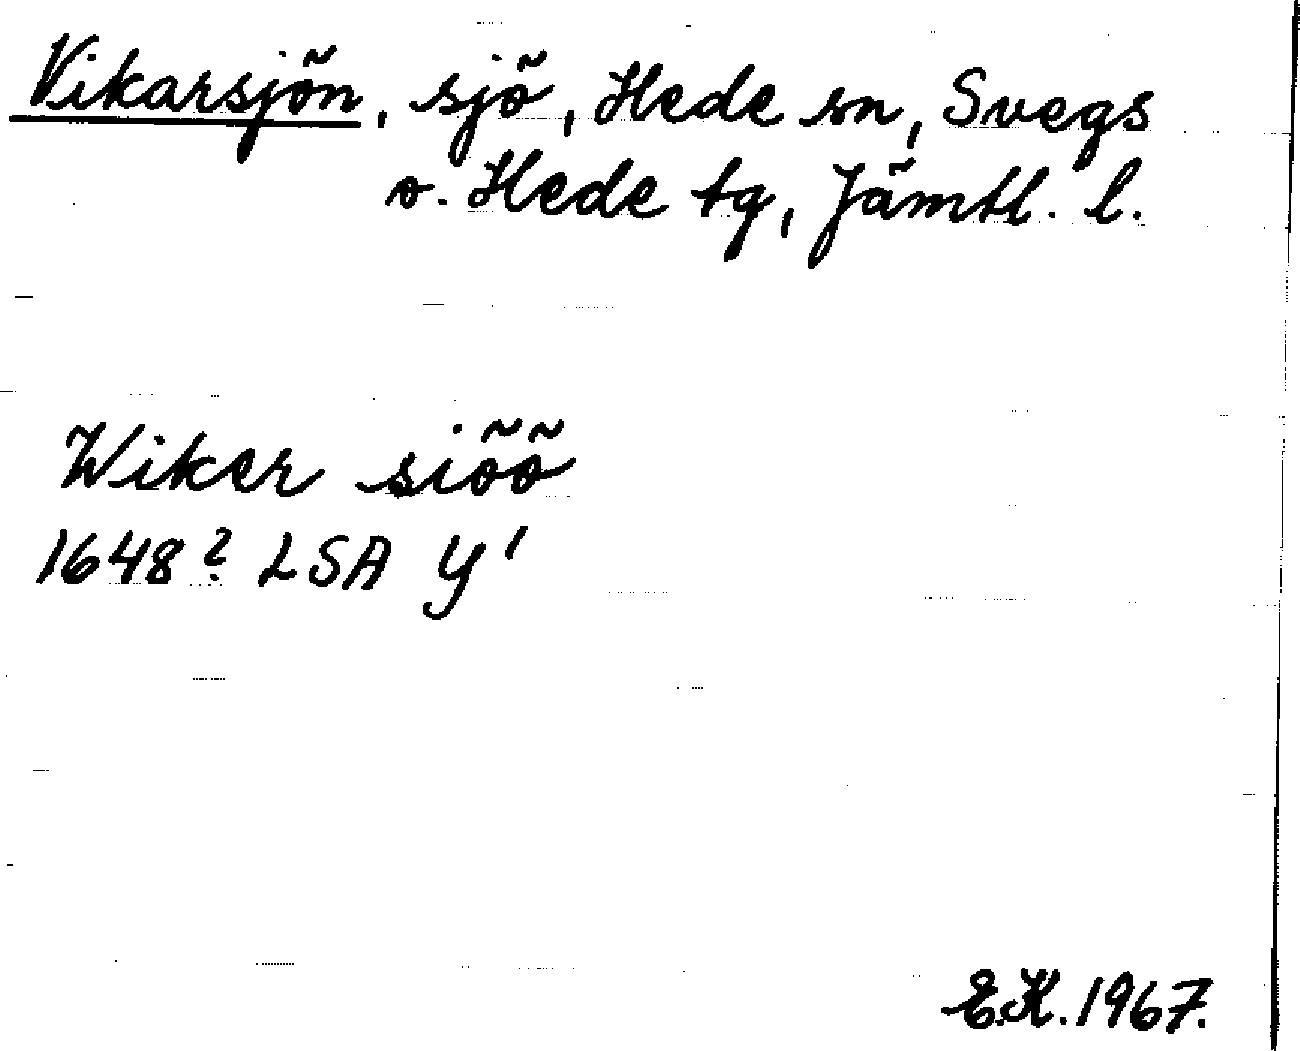 Vikarsjön, sjö, Hede sn, Svegs
o. Hede tg, Jämtl. l.
Wiker siöö
1648? LSA Y'
E.K. 1967.